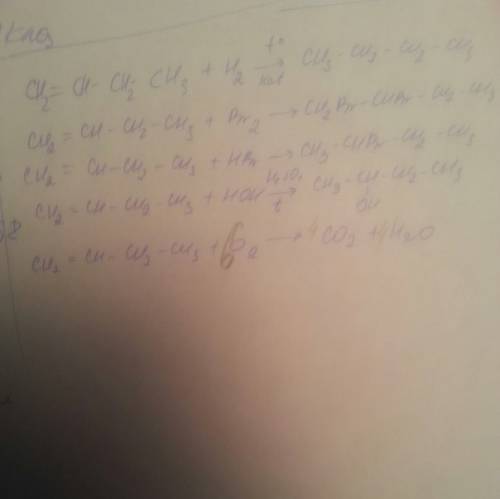 CH₂ = CH - CH₂ - CH₃ + H₂ →(t°, kat) CH₃ - CH₂ - CH₂ - CH₃
CH₂ = CH - CH₂ - CH₃ + Br₂ → CH₂Br - CHBr - CH₂ - CH₃
CH₂ = CH - CH₂ - CH₃ + HBr → CH₃ - CHBr - CH₂ - CH₃
CH₂ = CH - CH₂ - CH₃ + HOH →(H₂SO₄, t) CH₃ - CH - CH₂ - CH₃
OH
CH₂ = CH - CH₂ - CH₃ + 6O₂ → 4CO₂ + 4H₂O